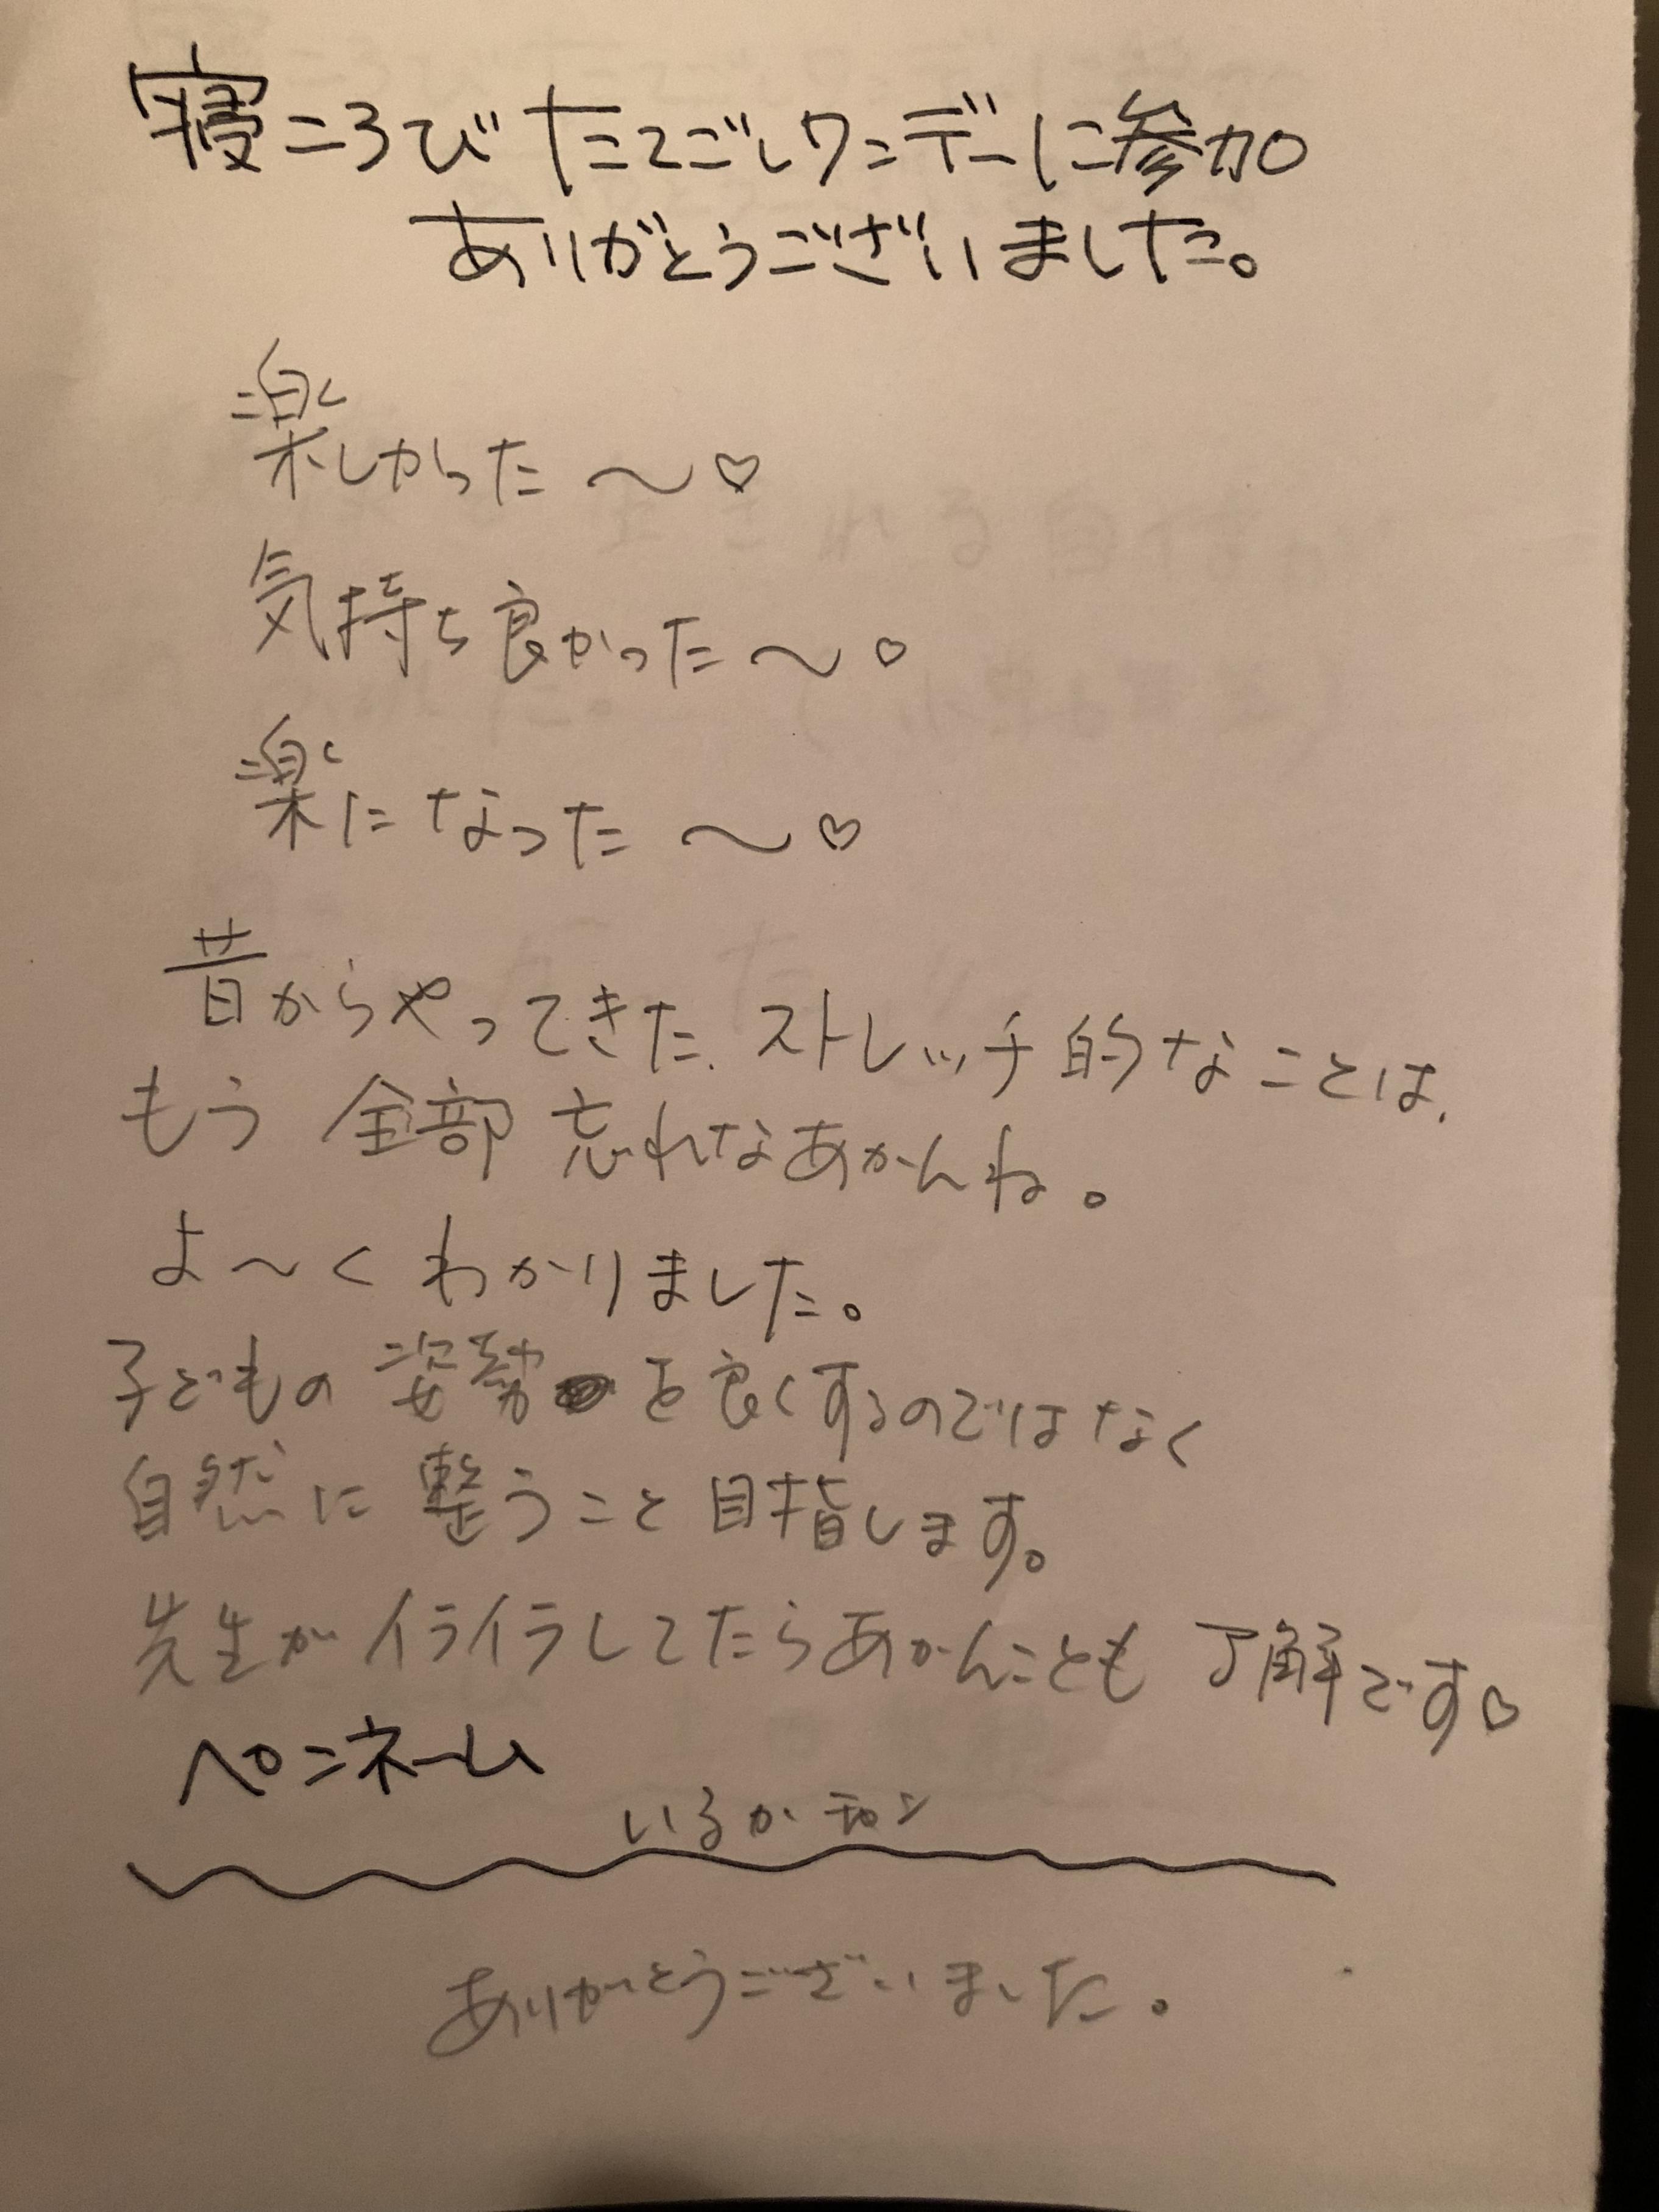 寝ころびたてごしワンデーに参加
ありがとうございました。
楽しかった〜♡
気持ち良かった〜♡
楽になった〜♡
昔からやってきた、ストレッチ的なことは、
もう 全部 忘れなあかんね。
よ〜く わかりました。
子どもの 姿勢を良くするのではなく
自然に 整うこと 目指します。
先生がイライラしてたらあかんことも 了解です♡
ペンネーム
いるか
ありがとうございました。